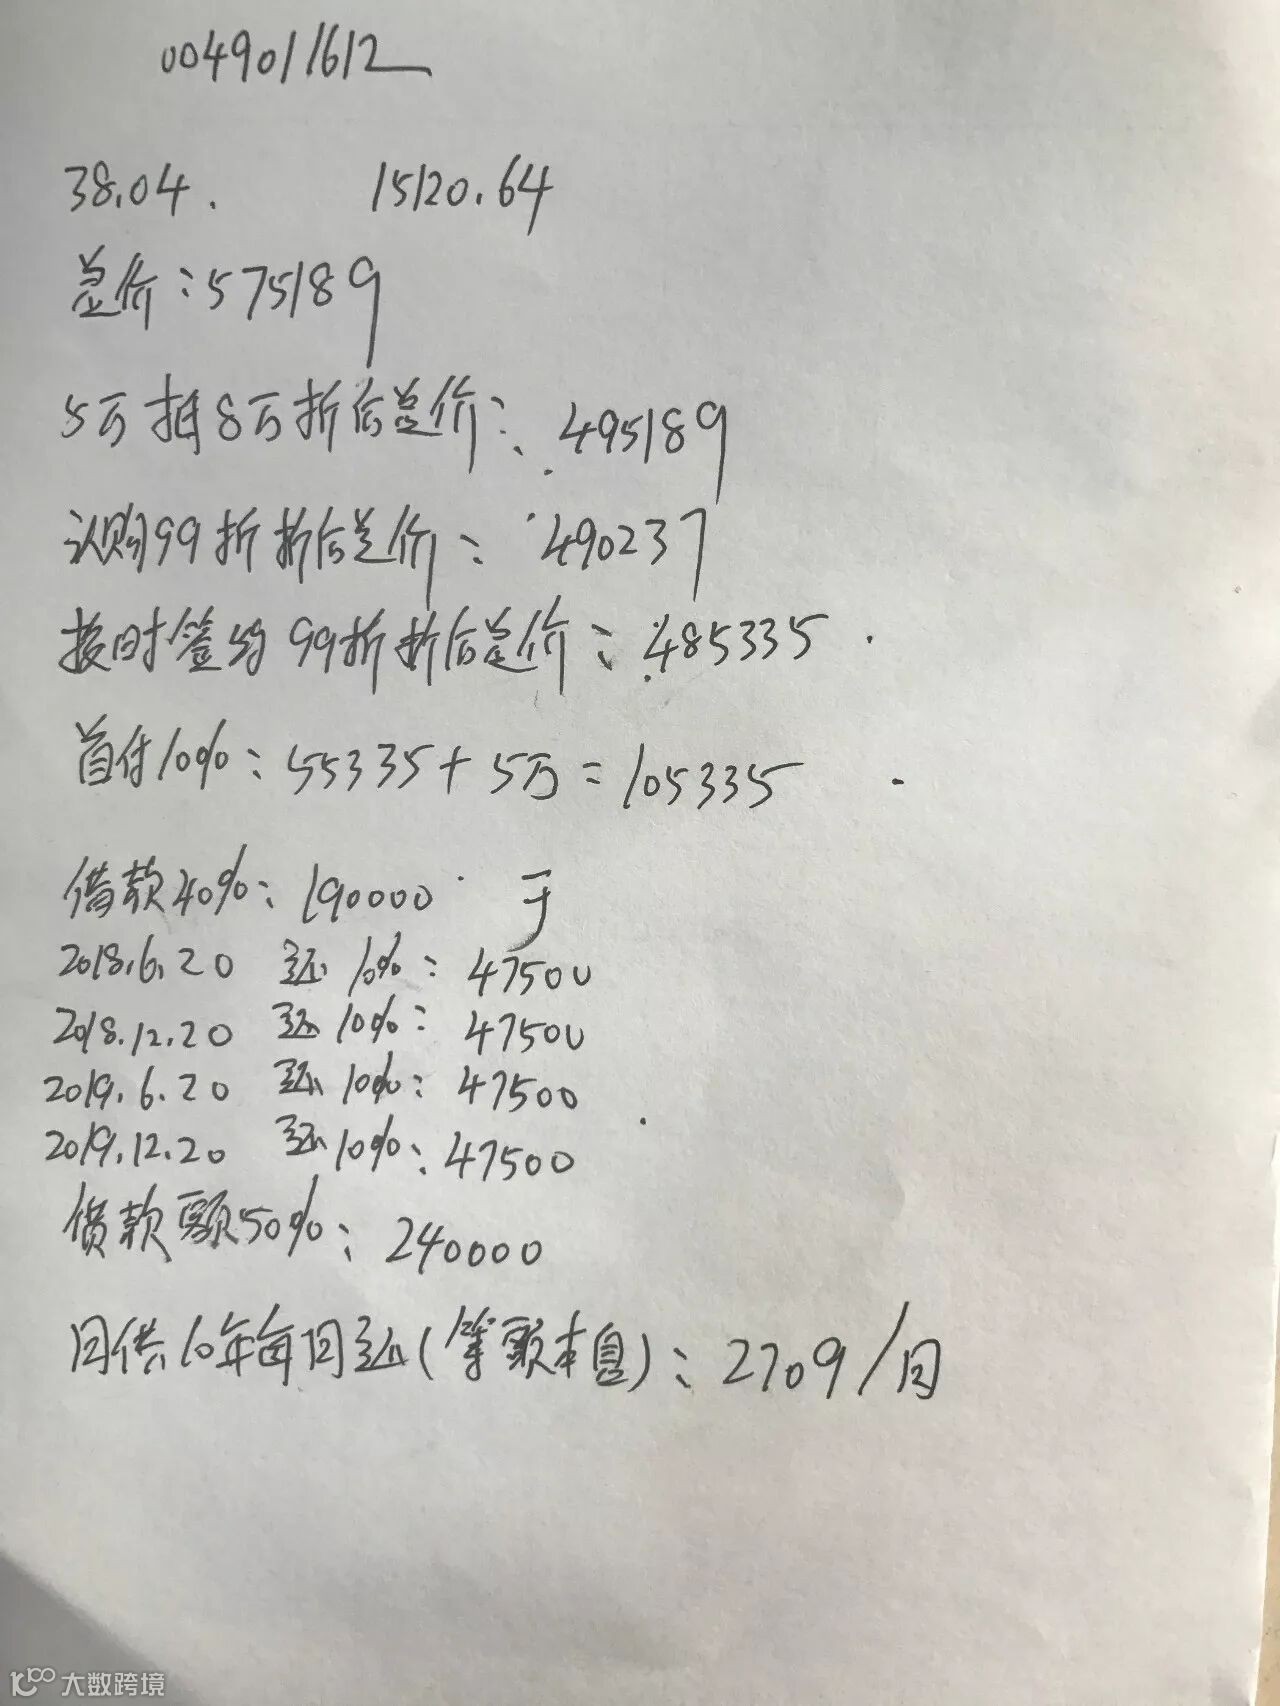 0049011612
38.04. 15120.64
总价:575189
5万抵8万折后总价:495189
认购99折折后总价:490237
按时签约99折折后总价:485335
首付10%:55335+5万=105335
借款40%:190000 于
2018.6.20 还10%:47500
2018.12.20 还10%:47500
2019.6.20 还10%:47500
2019.12.20 还10%:47500
贷款额50%:240000
月供10年每月还(等额本息):2709/月
大数跨境